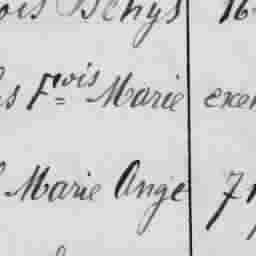 ois Denys 16
s Fçois Marie exe
Marie Ange 7